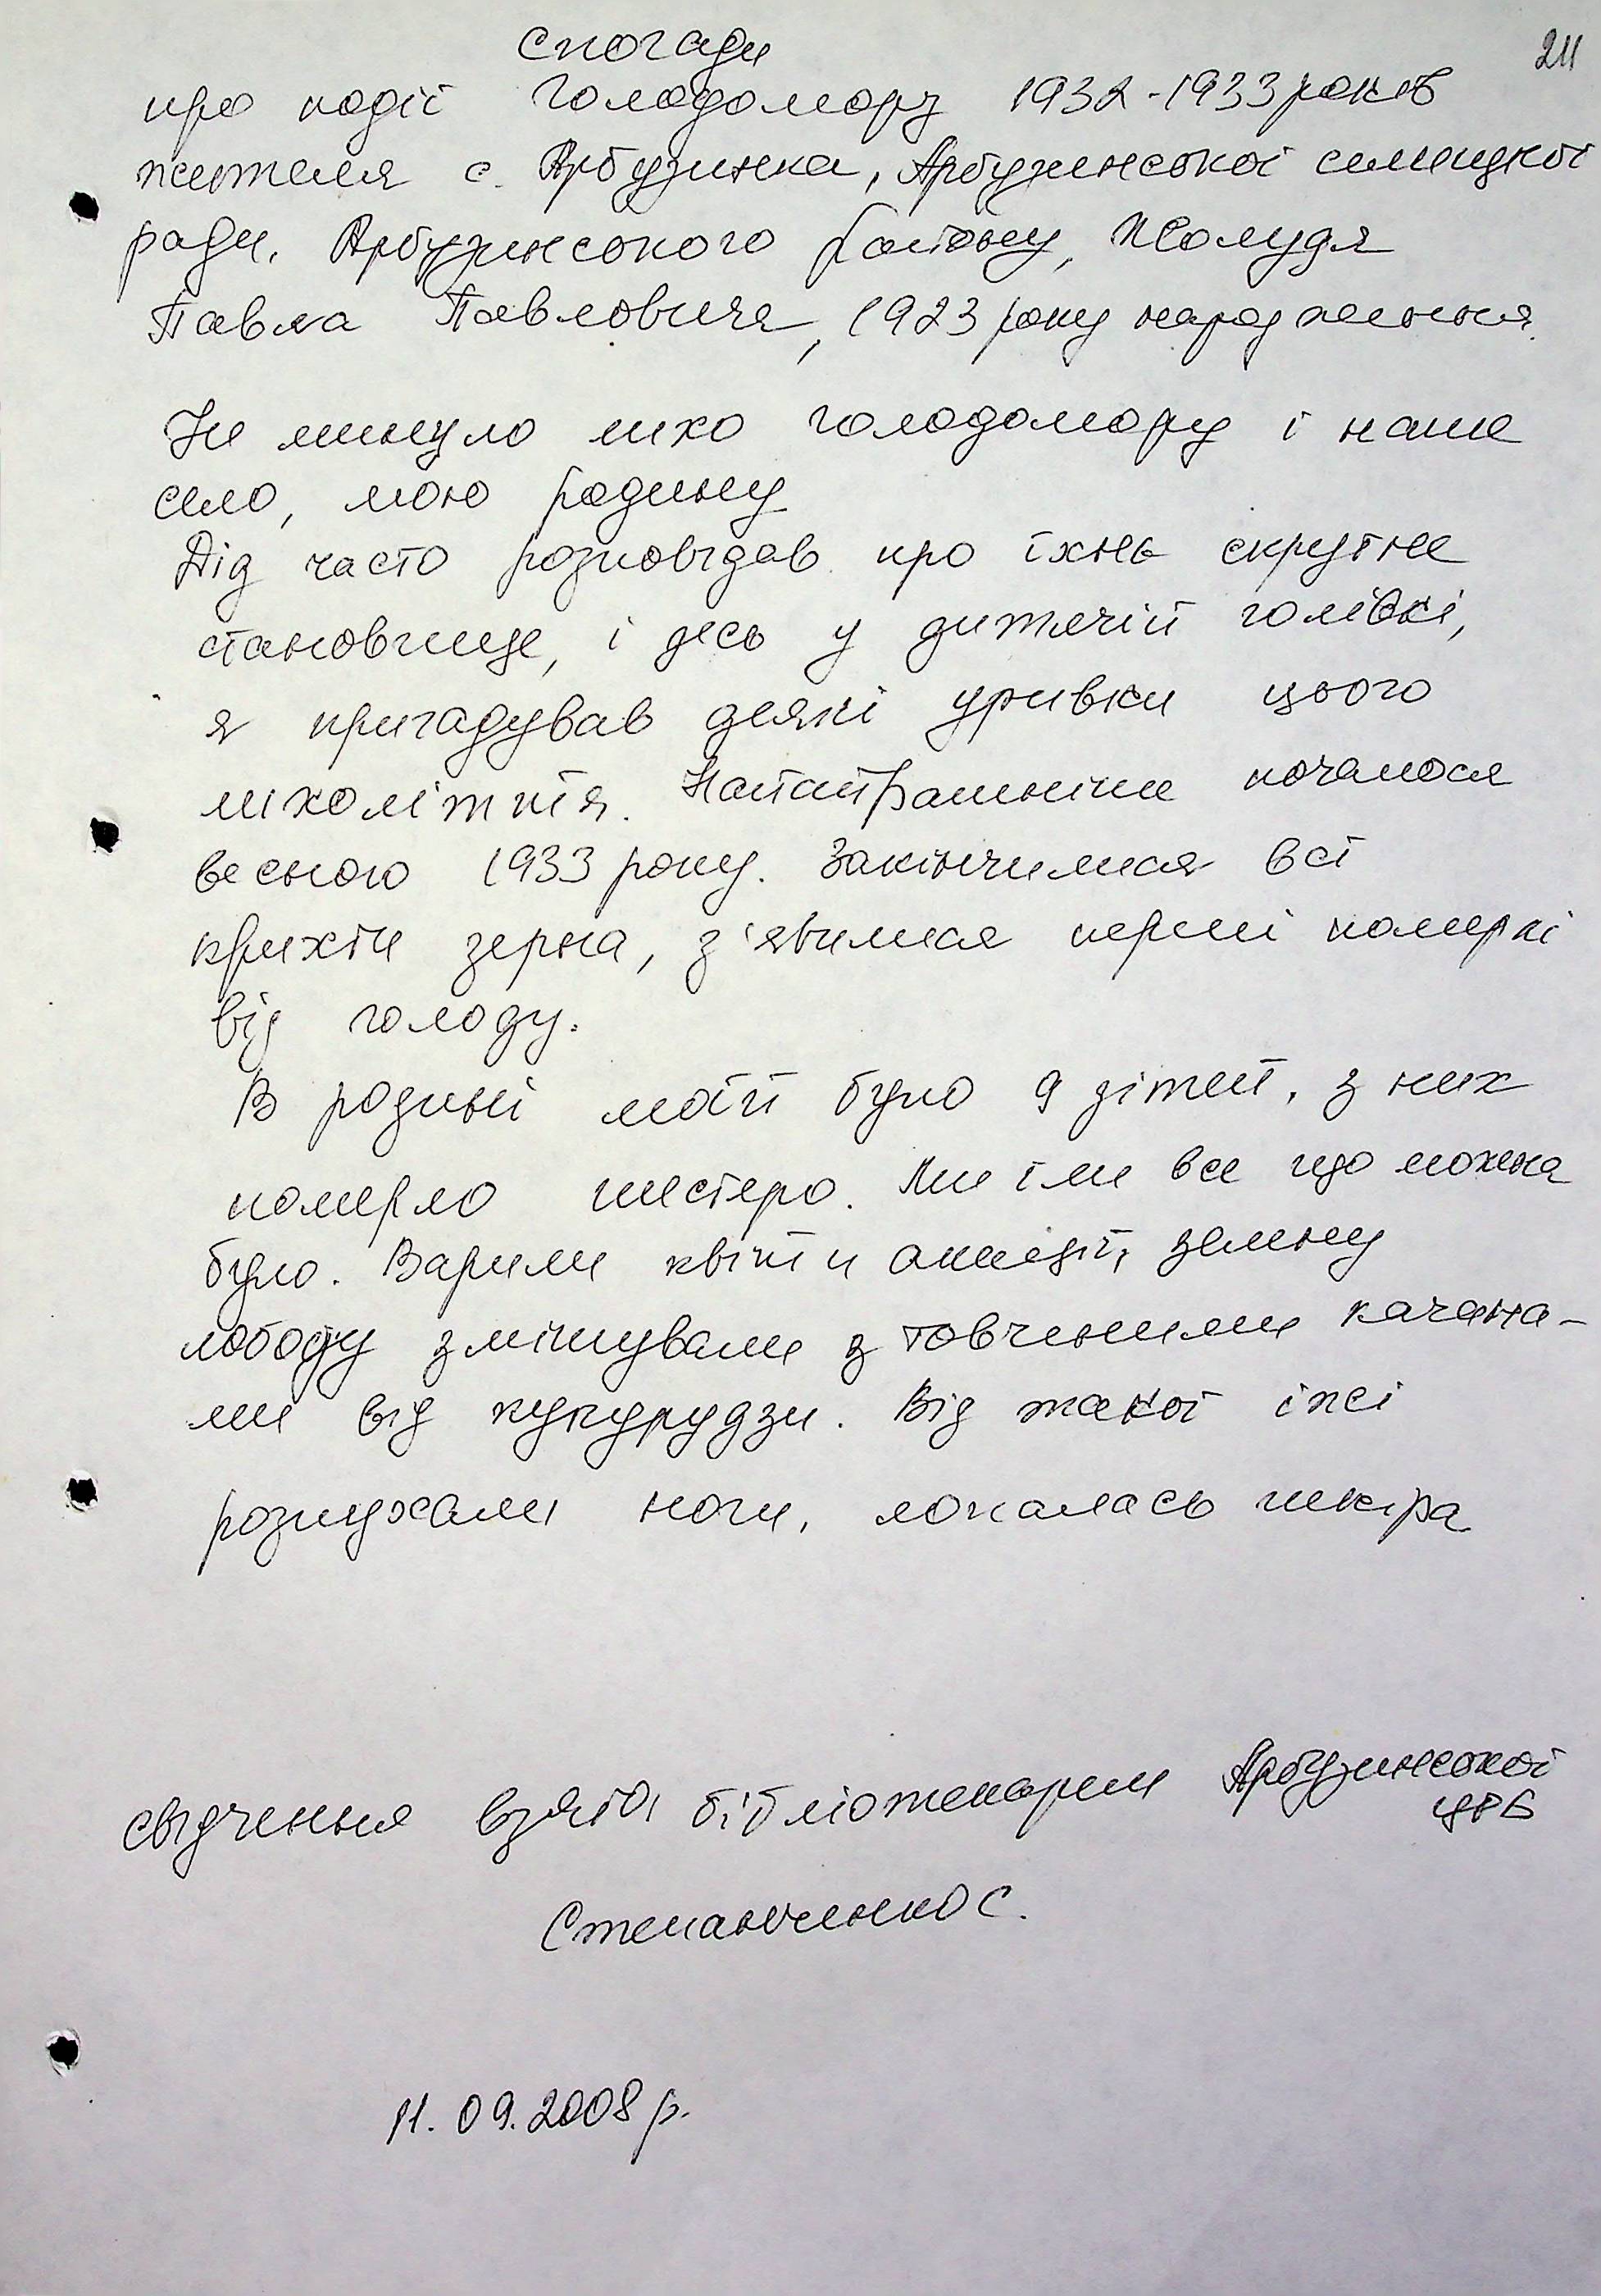 211
Спогади
про події Голодомору 1932-1933 років
жителя с. Арбузинка, Арбузинської селищної
ради, Арбузинського району, Жолудя
Павла Павловича, 1923 року народження.
Не минуло лихо голодомору і наше
село, мою родину
Дід часто розповідав про їхнє скрутне
становище, і десь у дитячій голівкі,
я пригадував деякі уривки цього
лихоліття. Найстрашніше почалося
весною 1933 року. Закінчилися всі
крихти зерна, з'явилися перші померлі
від голоду.
В родині моїй було 9 дітей, з них
померло шестеро. Ми їли все що можна
було. Варили квіти акації, зелену
лободу змішували з товченими качана-
ми від кукурудзи. Від такої їжі
розпухали ноги, лопалась шкіра
свідчення взято бібліотекарем Арбузинської
ЦРБ
Степанченко С.
11.09.2008 р.